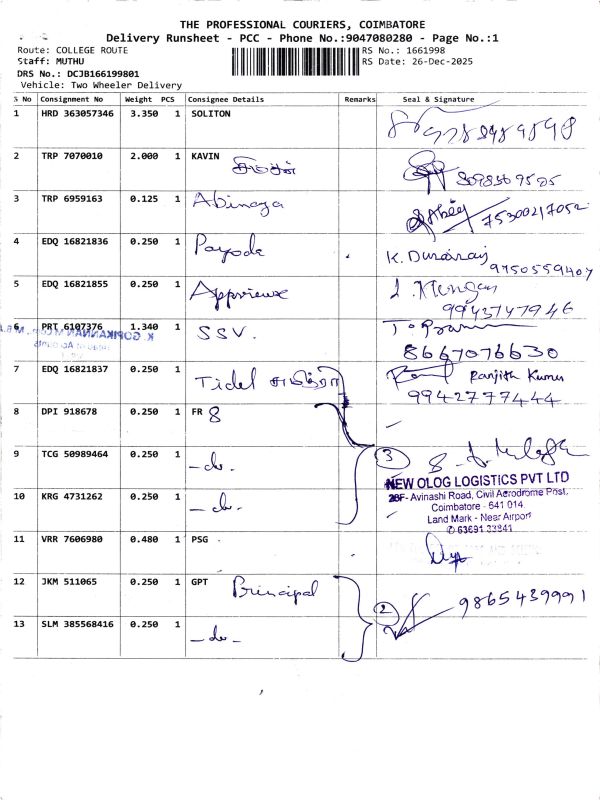 THE PROFESSIONAL COURIERS, COIMBATORE
Delivery Runsheet - PCC - Phone No.:9047080280 - Page No.:1
Route: COLLEGE ROUTE RS No.: 1661998
Staff: MUTHU RS Date: 26-Dec-2025
DRS No.: DCJB166199801
Vehicle: Two Wheeler Delivery
S No Consignment No Weight PCS Consignee Details Remarks Seal & Signature
1 HRD 363057346 3.350 1 SOLITON
2 TRP 7070010 2.000 1 KAVIN
3 TRP 6959163 0.125 1 Abinaya 75300217052
4 EDQ 16821836 0.250 1 Payoda K. Durairaj
9750559407
5 EDQ 16821855 0.250 1
9943747946
6 PRT 6107376 1.340 1 SSV.
8667076630
7 EDQ 16821837 0.250 1 Tidel Ranjith Kumar
9942777444
8 DPI 918678 0.250 1 FR 8
9 TCG 50989464 0.250 1 -do- 3
NEW OLOG LOGISTICS PVT LTD
28F- Avinashi Road, Civil Aerodrome Post,
10 KRG 4731262 0.250 1 -do- Coimbatore - 641 014.
Land Mark - Near Airport
11 VRR 7606980 0.480 1 PSG
12 JKM 511065 0.250 1 GPT Principal 2 9865439991
13 SLM 385568416 0.250 1 -do-